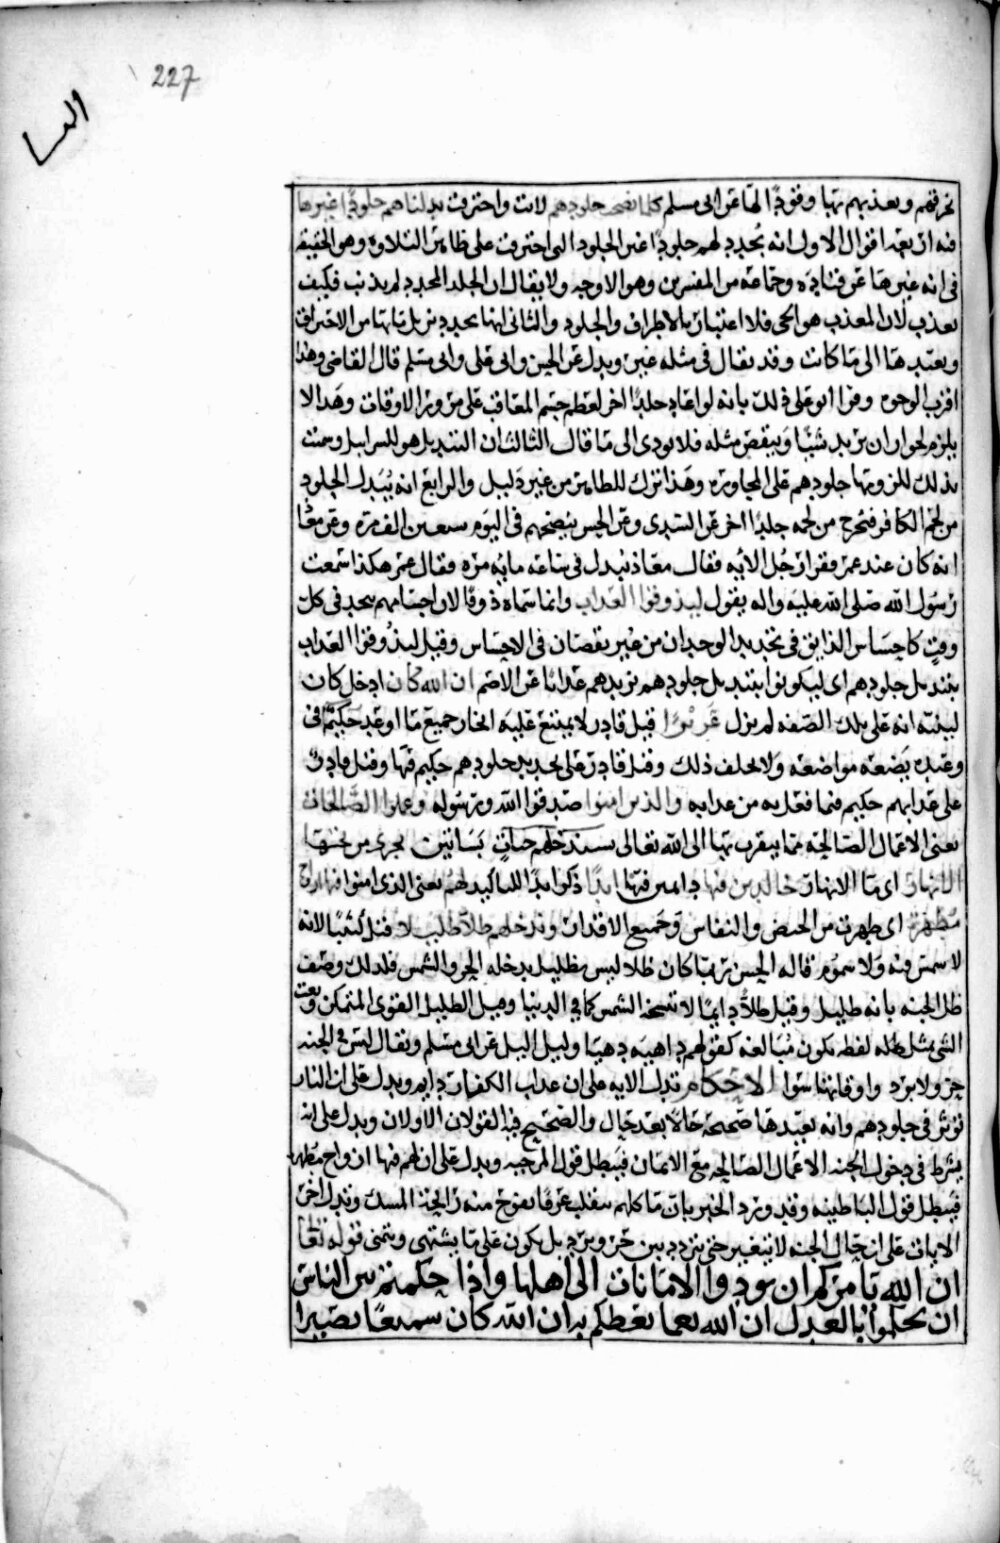 227
النسا
نحرقهم ويعذبهم بها وقودًا لها عن ابى مسلم كلما نضجت جلودهم لانت واحترقت بدلناهم جلودًا غيرها
فيه اربعة اقوال الاول انه يُجدد لهم جلودًا غير الجلود التى احترقت على ظاهر التلاوة وهو الحقيقة
فى انه غيرها عن قتادة وجماعة من المفسرين وهو الاوجه ولا يقال ان الجلد المجدد لم يذنب فكيف
يعذب لان المعذب هو الحى فلا اعتبار بالاطراف والجلود والثانى انها يجدد بزيل ما بها من الاحتراق
ويعيدها الى ما كانت وقد يقال فى مثله غيره وبدل عن الحسن وابى على وابى مسلم قال القاضى وهذا
اقرب الوجوه وقرا ابو على ذلك بانه لو اعاد جلدًا اخر لعظم جسم المعاقب على مرور الاوقات وهذا لا
يلزم لجواز ان يزيد شيئًا وينقص مثله فلا يودى الى ما قال الثالث ان التبديل هو للسرابيل وسمت
بذلك للزومها جلودهم على المجاورة وهذا ترك للظاهر من غير دليل والرابع انه يُبدل الجلود
من لحم الكافر فتخرج من لحمه جلدًا اخر عن السدى وعن الحسن ينضجهم فى اليوم سبعين الف مرة وعن معاذ
انه كان عند عمر فقرا رجل الاية فقال معاذ تبدل فى ساعة ماية مرة فقال عمر هكذا سمعت
رسول الله صلى الله عليه واله يقول ليذوقوا العذاب وانما سماه ذوقا لان اجسامهم يتجدد فى كل
وقتٍ كاحساس الذايق فى تجديد الوجدان من غير نقصان فى الاحساس وقيل ليذوقوا العذاب
بتبديل جلودهم اى ليكونوا بتبديل جلودهم نزيدهم عذابًا عن الاصم ان الله كان ادخل كان
ليبين انه على تلك الصفة لم يزل عزيزًا قيل قادر لا يمتنع عليه انجاز جميع ما اوعد حكيمًا فى
وعيده يضعه مواضعه ولا يخلف ذلك وقيل قادر على تجديد جلودهم حكيم فيها وقيل قادر
على عذابهم حكيم فيما فعل به من عذابه والذين امنوا صدقوا الله ورسوله وعملوا الصالحات
يعنى الاعمال الصالحة مما يتقرب بها الى الله تعالى سندخلهم جناتٍ بساتين تجرى من تحتها
الانهار اى ما الانهار خالدين فيها دايمين فيها ابدًا ذكر ابدًا للتاكيد لهم يعنى الذى امنوا فيها ازواج
مُطهرة اى طهرت من الحيض والنفاس وجميع الاقذار وندخلهم ظلًا ظليلًا قيل كنينًا لانه
لا شمس فيه ولا سموم قاله الحسن ربما كان ظلا ليس بظليل يدخله الحر والشمس فلذلك وصف
ظل الجنة بانه ظليل وقيل ظلًا دايمًا لا تنسخه الشمس كما فى الدنيا وقيل الظليل القوى المتمكن ونعت
الشى بمثل لفظه يكون مبالغة كقولهم داهية دهيا وليل اليل عن ابى مسلم ويقال ليس فى الجنة
حر ولا برد واوقاتها سوا الاحكام تدل الاية على ان عذاب الكفار دايم ويدل على ان النار
توثر فى جلودهم وانه يعيدها صحيحة حالًا بعد حال والصحيح فيه القولان الاولان ويدل على انه
يشترط فى دخول الجنة الاعمال الصالحة مع الايمان فيبطل قول المرجية ويدل على ان لهم فيها ازواج مطهرة
فيبطل قول الباطنية وقد ورد الخبر بان ما كلهم ينقلب عرقا يفوح منه رايحة المسك وتدل اخر
الايات على ان حال الجنة لا يتغير حتى يتردد بين حر وبرد بل يكون على ما يشتهى ويتمنى قوله تعا
ان الله يامركم ان تودوا الامانات الى اهلها واذا حكمتم بين الناس
ان تحكموا بالعدل ان الله نعما يعظكم به ان الله كان سميعًا بصيرا